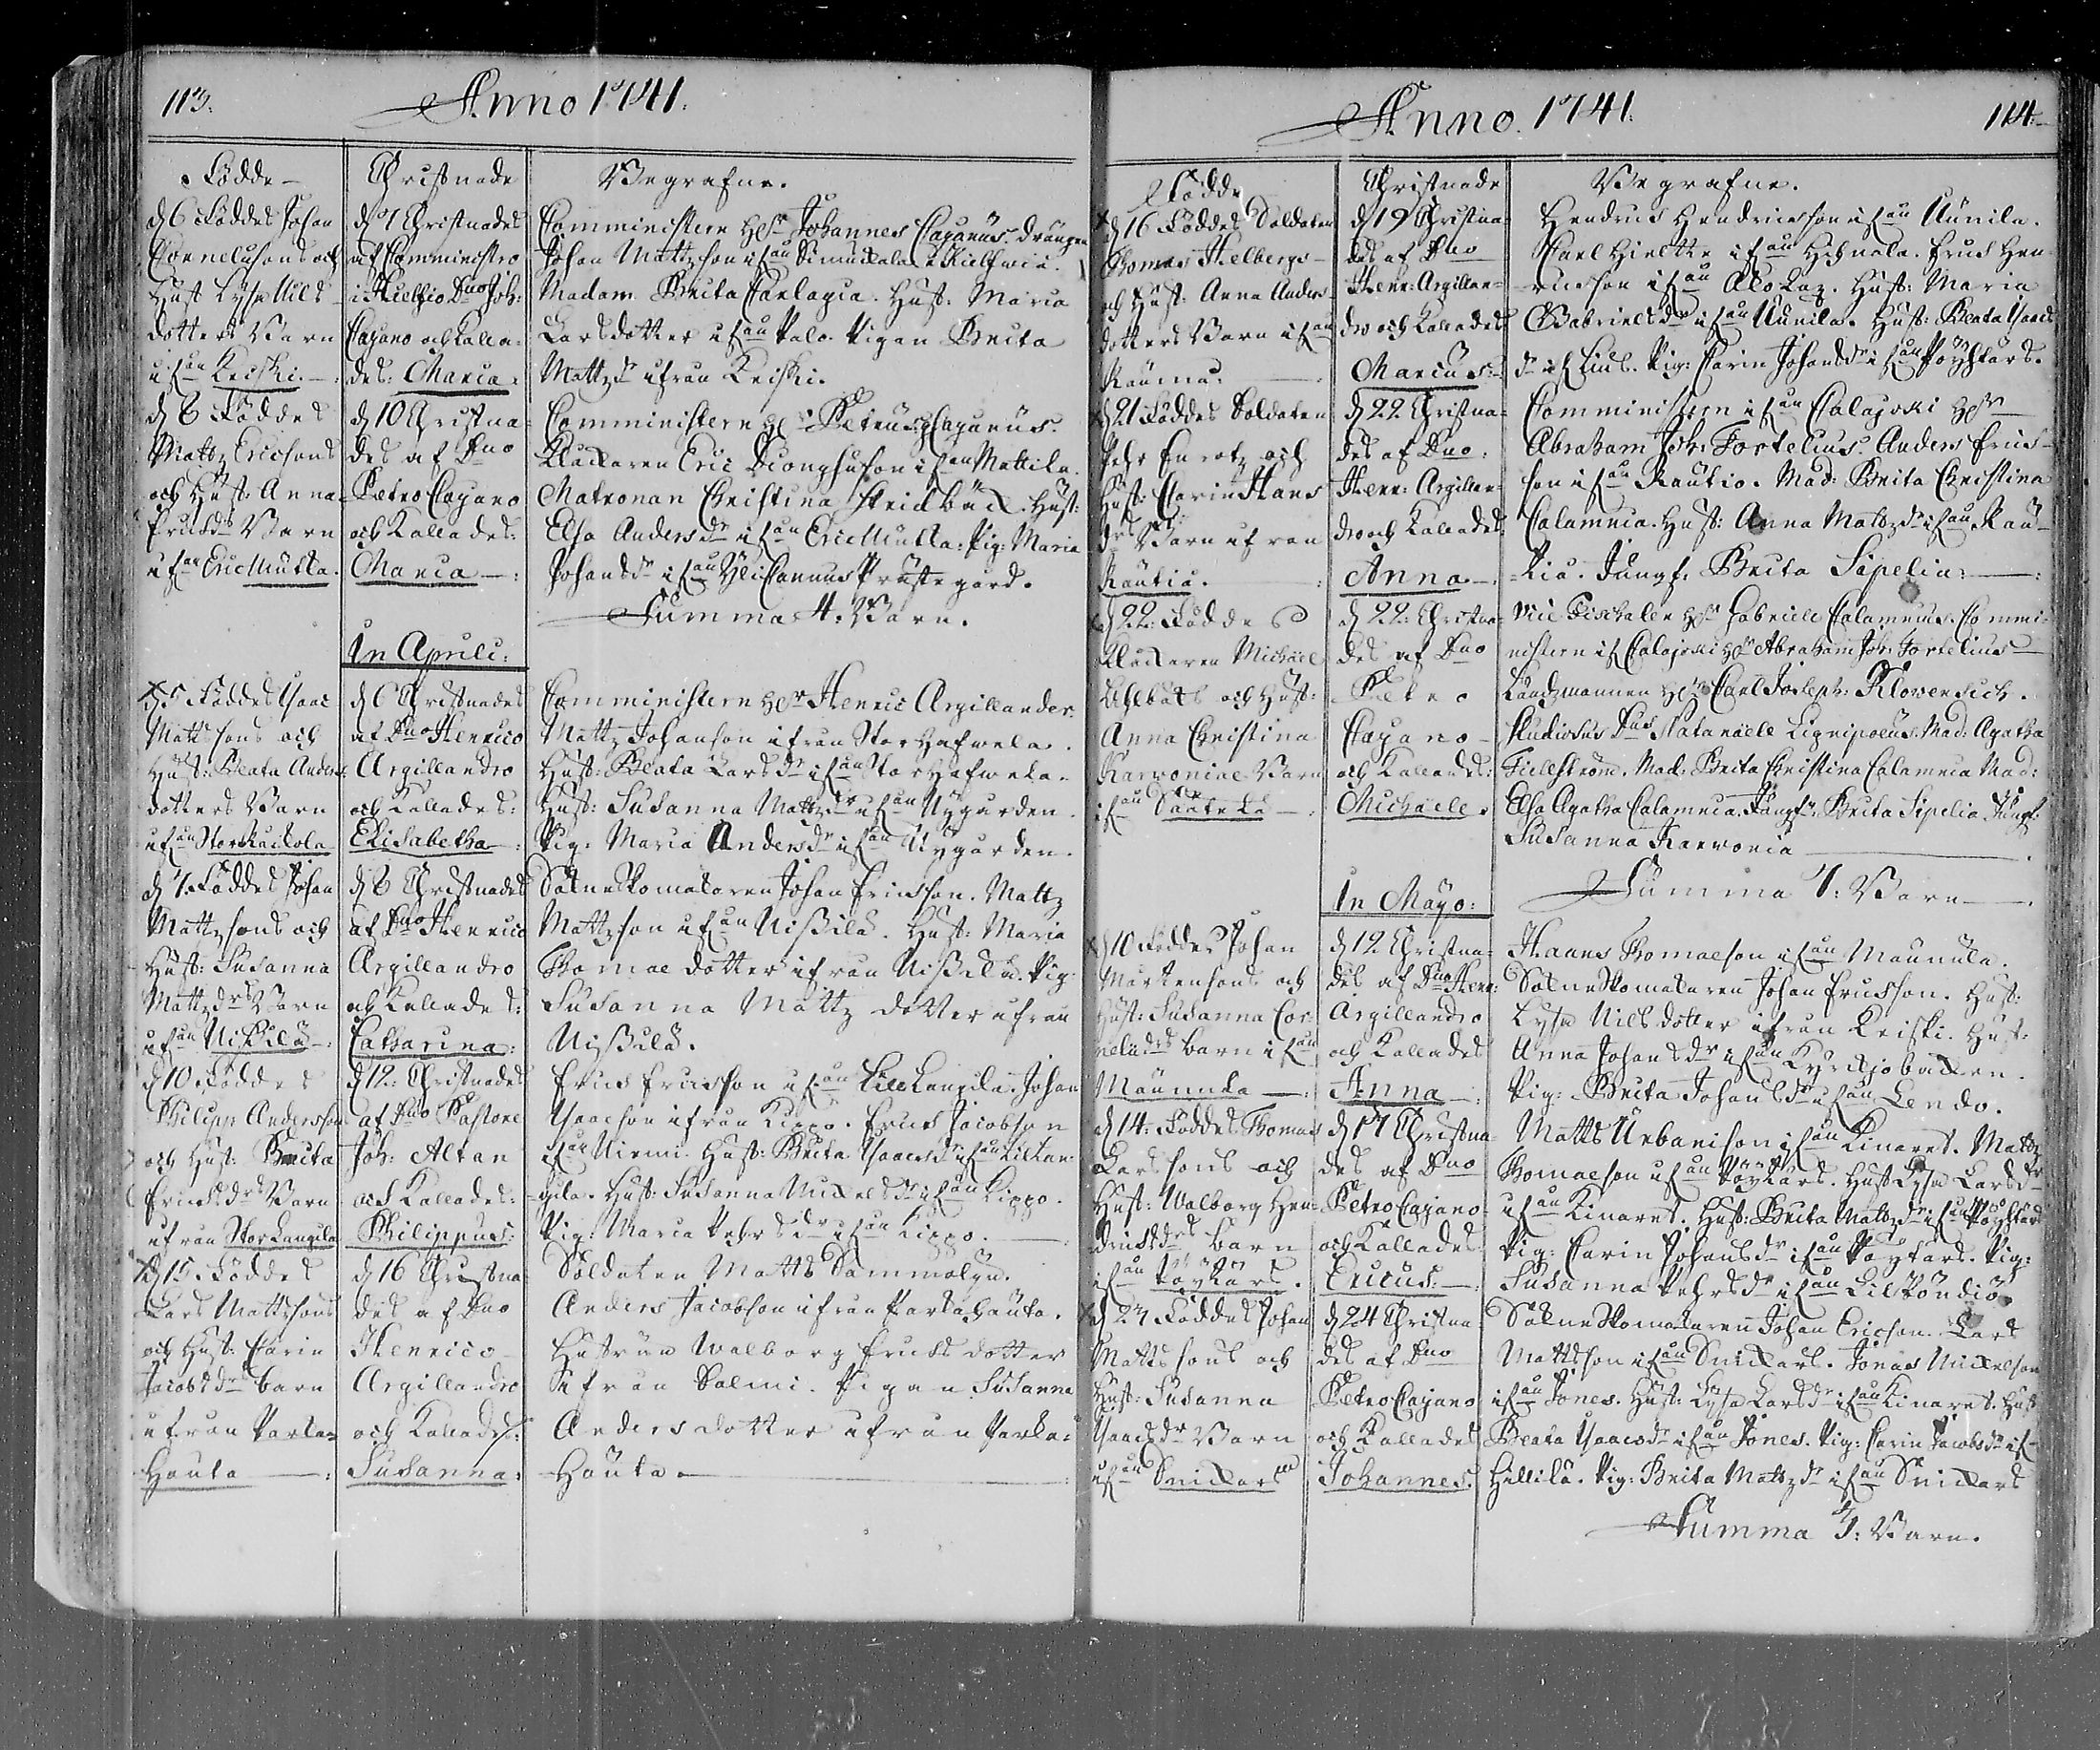 113.
Anno 1741.
Födde
d 6 Föddes Johan
Cornelusons och
Hust Lysa Nils
dotters Barn
ifrån Keiski.
d 6 Föddes
Mattz Ericsons
och Hust: Anna
Ericsdrs Barn
ifrån Eric Mutka.
d 5 Föddes Isaac
Mattssons och
Hust: Beata Anders
dotters Barn
ifrån Storkaikola
d 7. Föddes Johan
Mattzsons och
Hust: Susanna
Mattzdrs Barn
ifrån Nissilä
d 10 Föddes
Philipp Andersson
och Hust: Breita
Ericsdrs Barn
ifrån StorLangila
d 15. Föddes
Lars Mattssons
och Hust: Carin
Jacobsdrs barn
ifrån Parka=
Hauta
Christnade
d 7 Christnades
af Comministro
i Kielfvio Dno Joh:
Cajano och Kalla-
des: Maria.
d 10 Christna-
des af Dno
Petro Cajano
och Kallades:
Maria
In Aprili:
d 6 Christnades
af Dno Henrico
Argillandro
och Kallades:
Elisabetha
d 8 Christnades
af Dno Henrico
Argillandro
och Kallades:
Catharina:
d 12: Christnades
af Dno Pastore
Joh: Altan
och Kallades:
Philippus:
d 16 Christna
des af Dno
Henrico
Argillandro
och Kallades:
Susanna:
Begrafne.
Comministern Hr Johannes Cajanus. Drängen
Johan Mattzson ifrån
Madam Breita Carlagia. Hust: Maria
Larsdotter ifrån Palo. Pigan Breita
Mattzdr ifrån Keiski.
Comministern Hr Petrus Cajanus.
Klåckaren Eric ifrån Mattila.
Matronan Christina Hust:
Elsa Andersdr ifrån Eric Mutka: Pig: Maria
Johansdr ifrån YliCannus Prästegård.
Summa 4: Barn.
Comministern Hr Henric Argillander.
Mattz Johanson ifrån Storhafwela.
Hust: Beata Larsdr ifrån Storhafwela.
Hust: Susanna Mattzdr ifrån Nygården.
Pig: Maria Andersdr ifrån Nygården.
Sokneskomakaren Johan Ericsson. Mattz
Mattzson ifrån Nissilä. Hust: Maria
Thomae dotter ifrån Nissilä. Pig:
Susanna Mattz dotter ifrån
Nissilä.
Erics Ericsson ifrån LilleLangila. Johan
Isaacson ifrån Kippo. Erics Jacobson
ifrån Niemi. Hust: Breita Isaacsdr ifrån LilLan-
gila. Hust: Susanna Mickelsdr ifrån Kippo.
Pig: Maria Pehrsdr ifrån Kippo.
Soldaten Matts Sammalyn.
Anders Jacobson ifrån Parkahauta.
Hustrun Walborg Erics dotter
ifrån Salmi. Pigan Susanna
Anders dotter ifrån Parka=
Hauta.
Anno. 1741.
114.
Födde
d 16 Föddes Soldaten
Thomas Hielbergs
och Hust: Anna Anders
dotters Barn ifrån
Rauma.
d 21 Föddes Soldaten
Pehr Enrotz och
Hust: Carin Hans
drs Barn ifrån
Rautio.
d 22: Föddes
Klåckaren Michäel
och Hust:
Anna Christina
Karwoniae Barn
ifrån
d 10 Föddes Johan
Mårtensons och
Hust: Susanna Cor-
neliidrs barn ifrån
Maunula
d 14: Föddes Thomas
Larssons och
Hust: Walborg Hen-
dricsdrs barn
ifrån Pöykars.
d 23 Föddes Johan
Mattssons och
Hust: Susanna
Isaacsdrs Barn
ifrån Snickars
Christnade
d 19 Christna-
des af Dno
Henr: Argillan-
dro och Kallades
Marcus:
d 22 Christna-
des af Dno:
Henr: Argillan-
dro och Kallades.
Anna.
d 22: Christna-
des af Dno
Petro
Cajano
och Kallades:
Michaele.
In Mayo:
d 12 Christna-
des af Dno Henr:
Argillandro
och Kallades
Anna
d 17 Christna-
des af Dno
Petro Cajano
och Kallades
Ericus:
d 24 Christna
des af Dno
Petro Cajano
och Kallades
Johannes.
Begrafne.
Hendrics Hendricsson ifrån Uunila.
Carl Hielte ifrån Erics Hen-
ricsson ifrån Hust: Maria
Gabrielsdr ifrån Uunila. Hust: Beata Isaacs
dr if Pig: Carin Johansdr ifrån Pöyhkärs.
Comministern ifrån Calajoki Hr
Abraham Joh: Fortelius. Anders Erics-
son ifrån Rautio. Mad: Breita Christina
Calamnia. Hust: Anna Mattzdr ifrån Rau-
tio. Jungf. Breita Sipelia:
Vice Fischalen Hr Gabriell Calamnius. Commi-
nistern if Calajoki Hr Abraham Joh: Fortelius
Ländzmannen Hr Carl Joseph:
Studiosus Dns Natanaële Lignipoeus. Mad: Agatha
Fiellström. Mad: Breita Christina Calamnia Mad:
Elsa Agatha Calamnia. Jungf: Breita Sipelia Jungf:
Susanna Karwonia
Summa 7: Barn
Hanns Thomaeson ifrån Maunula.
Sokneskomakaren Johan Ericsson. Hust:
Lysa Nilsdotter ifrån Keiski. Hust:
Anna Johansdr ifrån
Pig: Breita Johansdr ifrån Lendo.
Matts Urbanison ifrån Kinaret. Mattz
Thomaeson ifrån Pöykars. Hust Lysa Larsdr
ifrån Kinaret. Hust: Breita Mattzdr ifrån Pöyhkärs
Pig: Carin Johansdr ifrån Pöykars. Pig:
Susanna Pehrsdr ifrån
Sokneskomakaren Johan Ericson. Lars
Mattsson ifrån Snickars. Jonas Mickelson
ifrån Jones. Hust: Lysa Larsdr ifrån Kinaret. Hust
Beata Isaacsdr ifrån Jones. Pig: Carin Jacobsdr if
Hillilä. Pig: Breita Mattzdr ifrån Snickars
Summa 3: Barn.